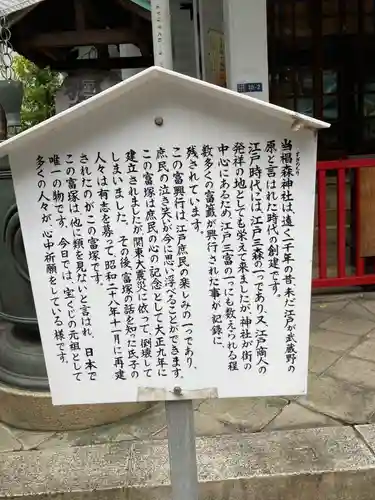 当椙森神社は遠く一千年の昔、未だ江戸が武蔵野の
すぎのもり
原と言はれた時代の創建です。
江戸時代には江戸三森の一つであり、又江戸商人の
発祥の地としても栄えて来ましたが、神社が街の
中心にあるため、江戸三富の一つにも数えられる程
数多くの富籤が興行された事が記録に
残されています。
この富興行は江戸庶民の楽しみの一つであり、
庶民の泣き笑いが今に思い浮べることができます。
この富塚は庶民の心の記念として大正九年に
建立されましたが関東大震災に依って、倒壊して
しまいました。その後、富塚の話を知った氏子の
人々は有志を募って、昭和二十八年十一月に再建
されたのがこの富塚です。
この富塚は、他に類を見ないと言はれ、日本で
唯一の物です。今日では、宝くじの元祖として
多くの人々が、心中祈願をしている様です。